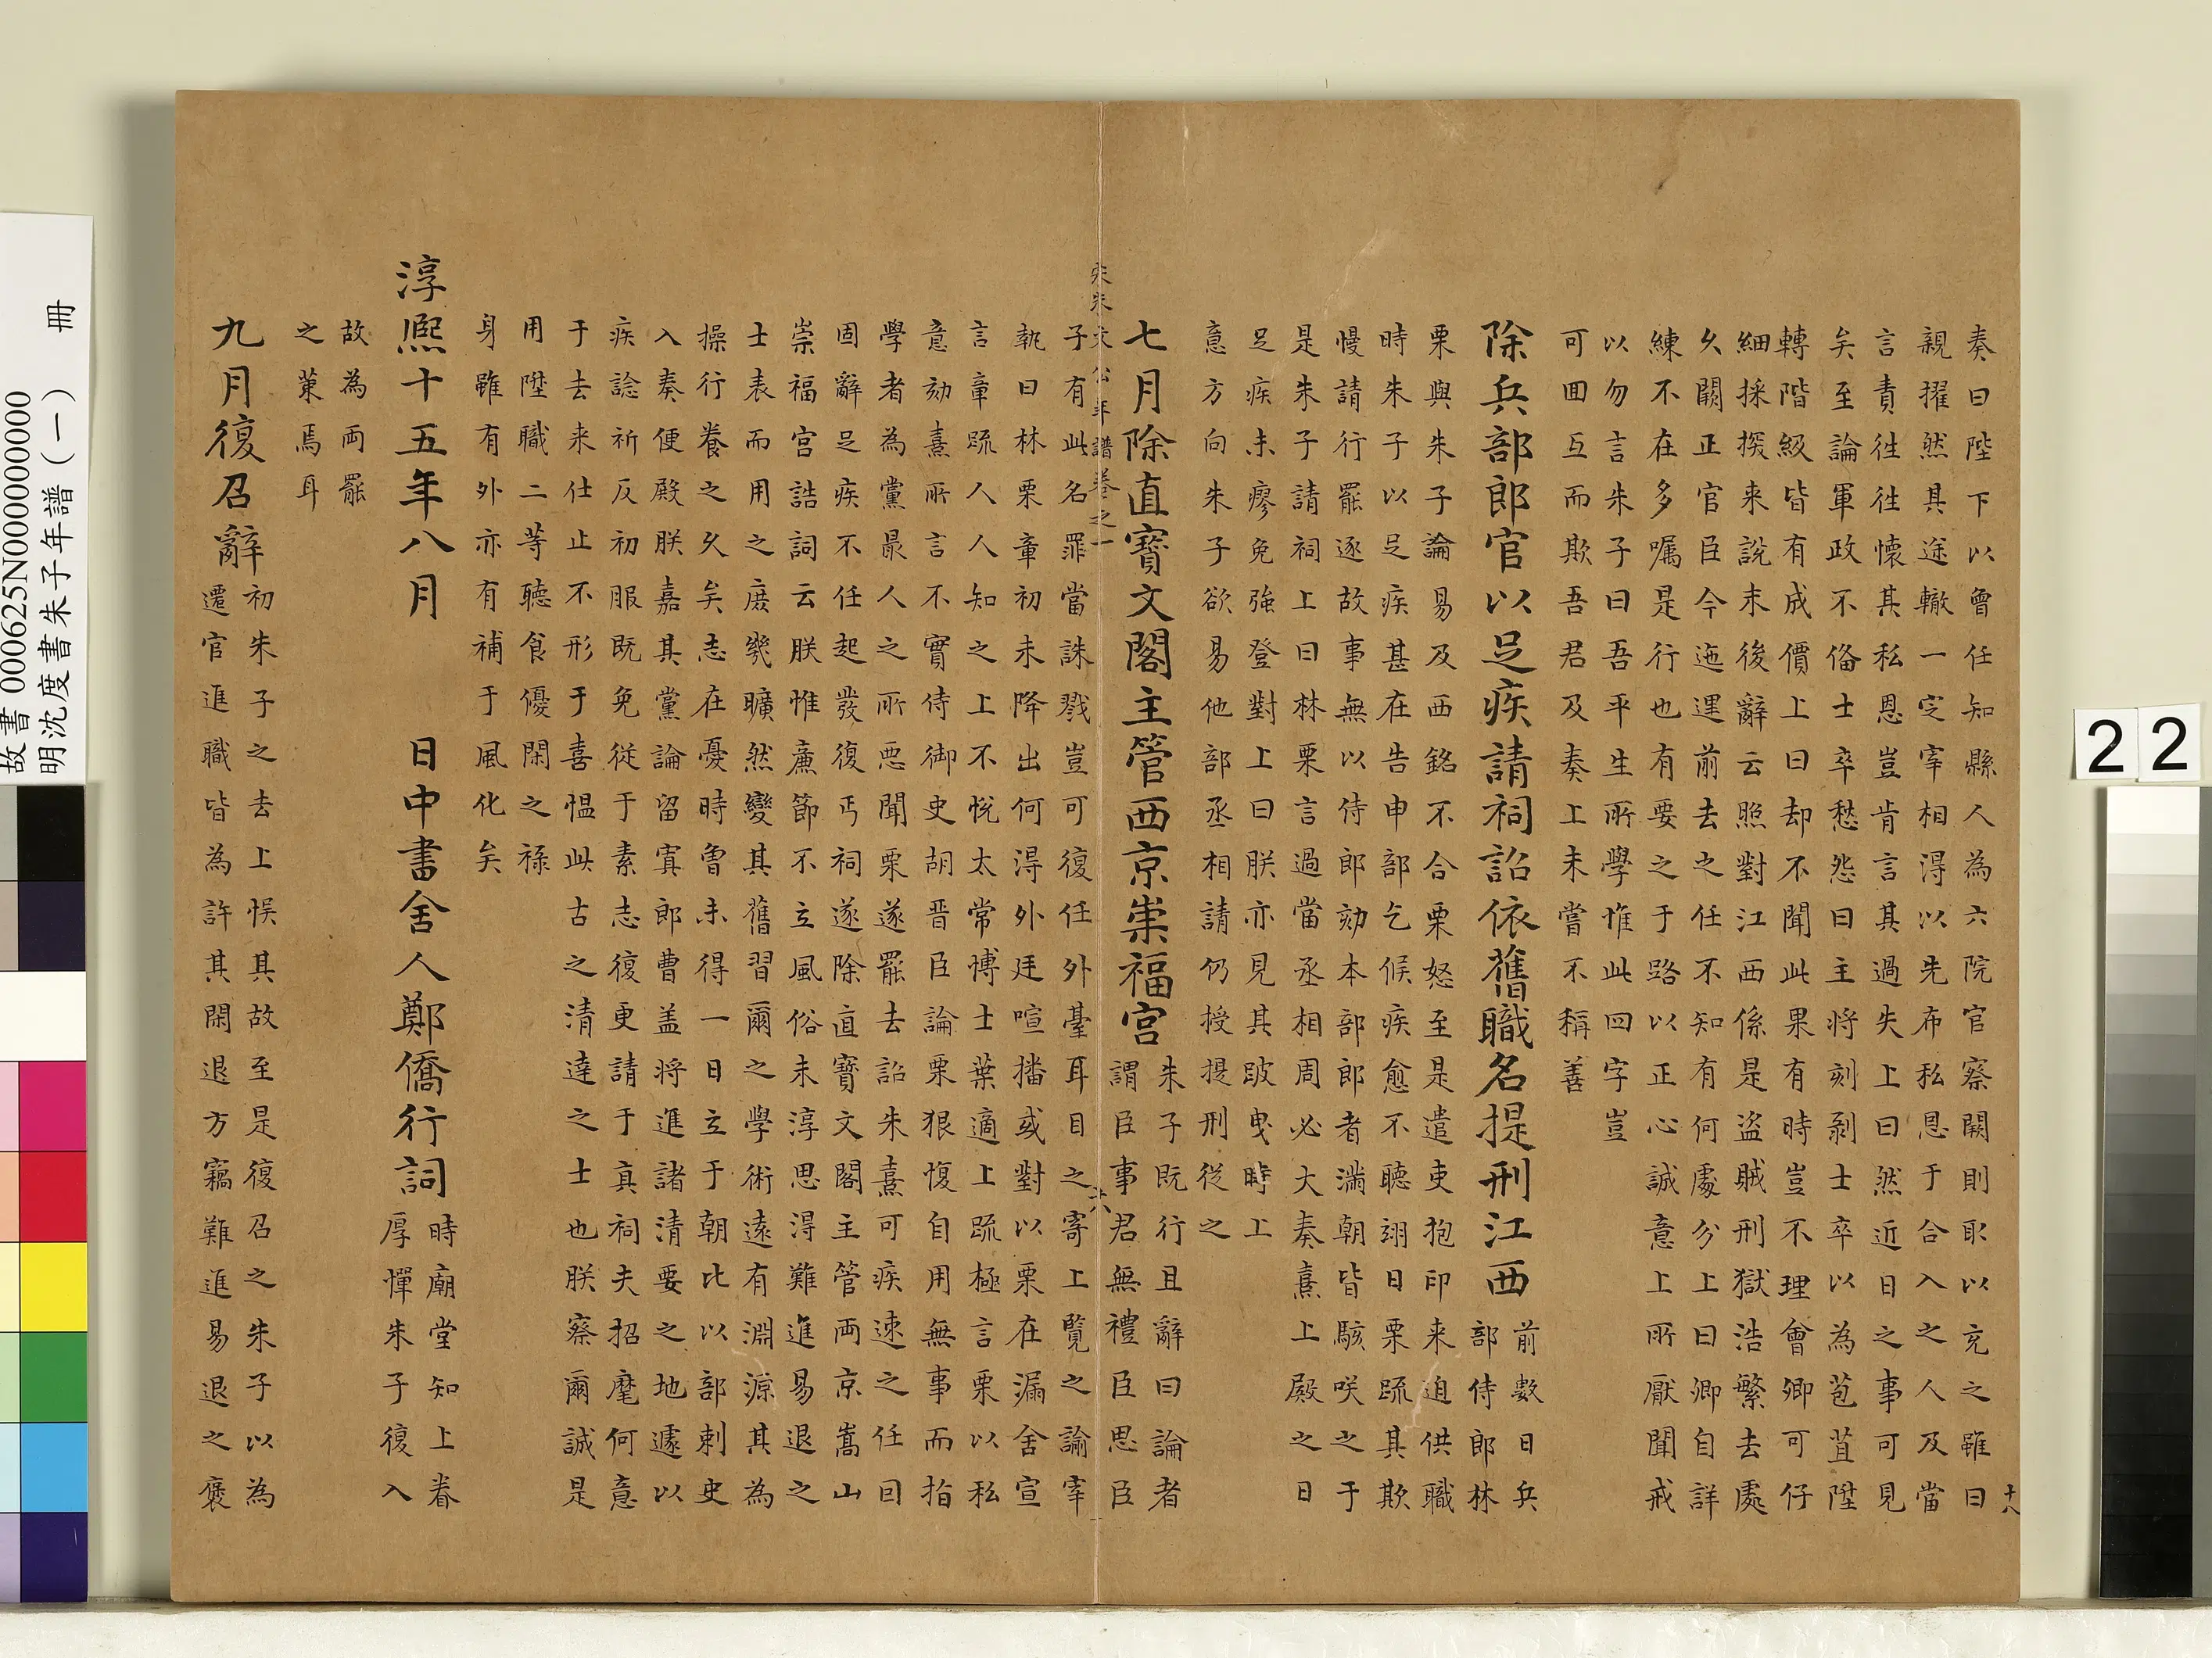 奏曰陛下以曾任知縣人為六院官察闕則取以充之雖曰
親擢然其途轍一定宰相得以先布私恩于合入之人及當
言責徃徃懷其私恩豈肯言其過失上曰然近日之事可見
矣至論軍政不俻士卒愁怨曰主將刻剥士卒以為苞苴陞
轉階級皆有成價上曰却不聞此果有時豈不理會卿可仔
細採探来說末後辭云照對江西係是盜賊刑獄浩繁去處
久闕正官臣今迤邐前去之任不知有何處分上曰卿自詳
練不在多嘱是行也有要之于路以正心誠意上所厭聞戒
以勿言朱子曰吾平生所學惟此四字豈
可囬互而欺吾君及奏上未嘗不稱善
除兵部郎官以足疾請祠詔依舊職名提刑江西
前數日兵
部侍郎林
栗與朱子論易及西銘不合栗怒至是遣吏抱印来迫供職
時朱子以足疾甚在告申部乞候疾愈不聽翊日栗疏其欺
慢請行罷逐故事無以侍郎劾本部郎者滿朝皆駭咲之于
是朱子請祠上曰林栗言過當丞相周必大奏熹上殿之日
足疾未瘳免強登對上曰朕亦見其跛曳時上
意方向朱子欲易他部丞相請仍授提刑従之
七月除直寶文閣主管西京崇福宫
朱子既行且辭曰論者
謂臣事君無禮臣思臣
宋朱文公年譜卷之一
十八
子有此名罪當誅戮豈可復任外臺耳目之寄上覽之諭宰
執曰林栗章初未降出何淂外廷喧播或對以栗在漏舍宣
言章疏人人知之上不悅太常博士葉適上疏極言栗以私
意劾熹所言不實侍御史胡晋臣論栗狠愎自用無事而指
學者為黨最人之所悪聞栗遂罷去詔朱熹可疾速之任囙
固辭足疾不任起發復丐祠遂除直寶文閣主管西京嵩山
崇福宫誥詞云朕惟廉節不立風俗未淳思淂難進易退之
士表而用之庶㡬曠然變其舊習爾之學術逺有淵源其為
操行飬之久矣志在憂時魯未得一日立于朝比以部刺史
入奏便殿朕嘉其黨論留寘郎曹盖將進諸清要之地遽以
疾諗祈反初服既免従于素志復更請于真祠夫招麾何意
于去来仕止不形于喜愠此古之清達之士也朕察爾誠是
用陞職二等聽食優閑之禄
身雖有外亦有補于風化矣
淳熈十五年八月　日中書舍人鄭僑行詞
時廟堂知上眷
厚憚朱子復入
故為兩罷
之䇿焉耳
九月復召辭
初朱子之去上悮其故至是復召之朱子以為
遷官進職皆為許其閑退方竊難進易退之褒
十八
22
故書 000625N000000000
明沈度書朱子年譜(一) 冊